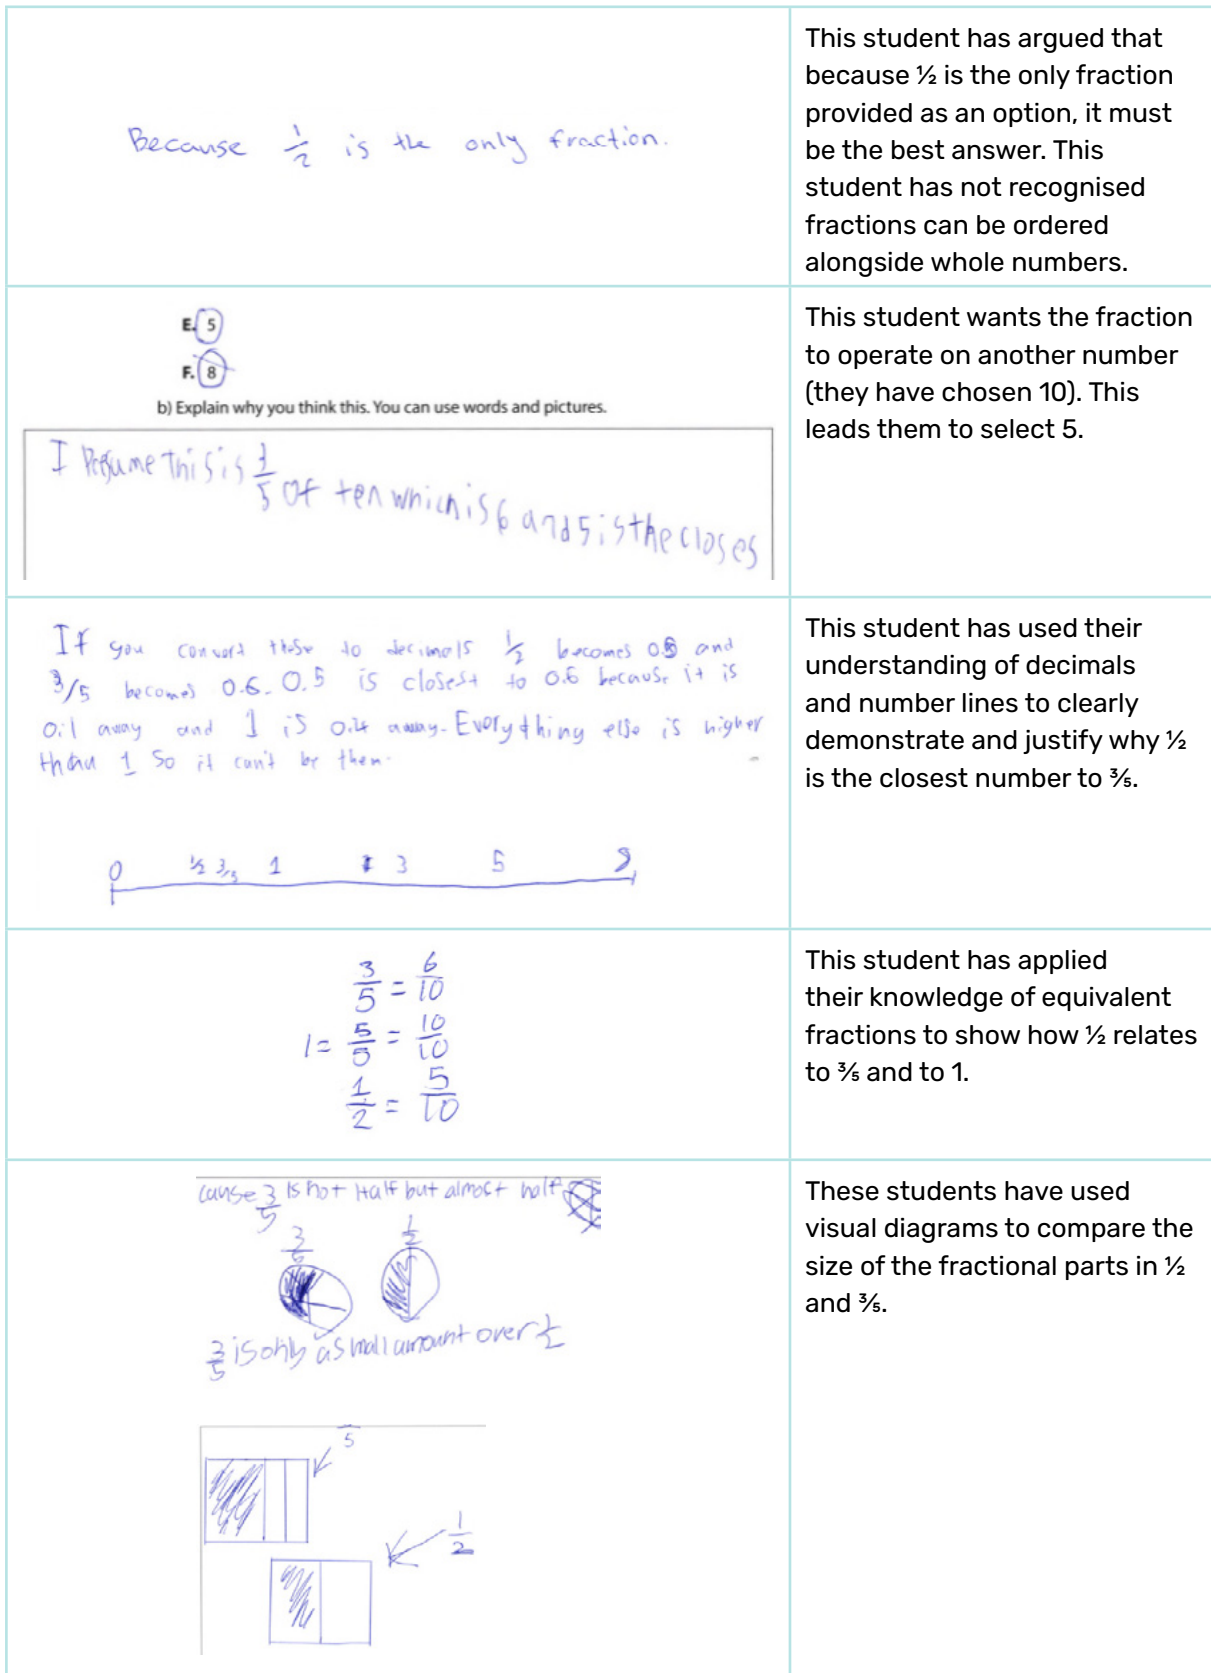 Because 1/2 is the only fraction.
This student has argued that
because ½ is the only fraction
provided as an option, it must
be the best answer. This
student has not recognised
fractions can be ordered
alongside whole numbers.
E. 5
F. 8
b) Explain why you think this. You can use words and pictures.
I this is 3/5 of ten which is 6 and 5 is the closes
This student wants the fraction
to operate on another number
(they have chosen 10). This
leads them to select 5.
If you convert these to decimals 1/2 becomes 0.5 and
3/5 becomes 0.6. 0.5 is closest to 0.6 because it is
0.1 away and 1 is 0.4 away. Everything else is higher
than 1 so it can't be them.
0 ½ 3/5 1 3 5 8
This student has used their
understanding of decimals
and number lines to clearly
demonstrate and justify why ½
is the closest number to ⅗.
3/5 = 6/10
1 = 5/5 = 10/10
1/2 = 5/10
This student has applied
their knowledge of equivalent
fractions to show how ½ relates
to ⅗ and to 1.
cause 3/5 is not Half but almost half
3/5 1/2
3/5 is only a small amount over 1/2
5
1/2
These students have used
visual diagrams to compare the
size of the fractional parts in ½
and ⅗.